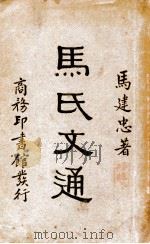 馬建忠著
馬氏文通
商務印書館發行
www.toutiaocn.com